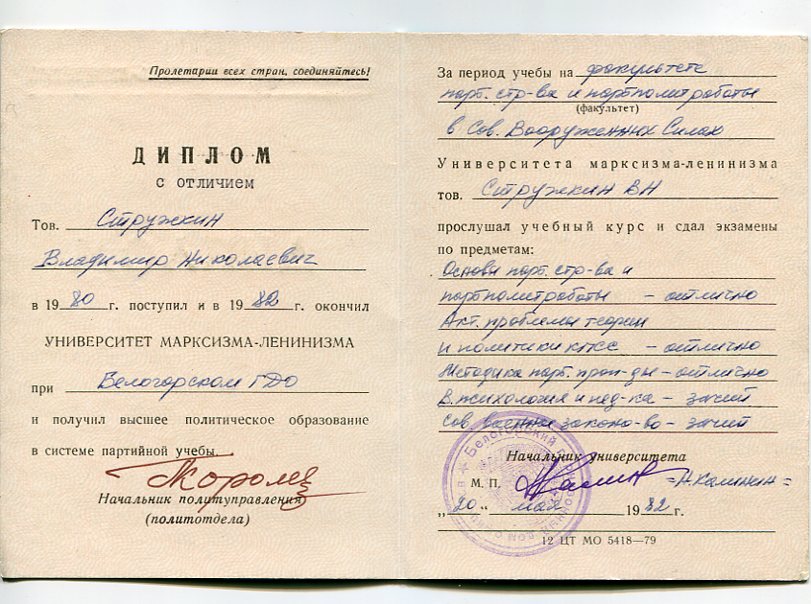 Пролетарии всех стран, соединяйтесь!
ДИПЛОМ
с отличием
Тов. Стружкин
Владимир Николаевич
в 1980 г. поступил и в 1982 г. окончил
УНИВЕРСИТЕТ МАРКСИЗМА-ЛЕНИНИЗМА
при Белогорском ГДО
и получил высшее политическое образование
в системе партийной учебы.
Начальник политуправления
(политотдела)
За период учебы на факультете
парт. стр-ва и партполитработы
(факультет)
в Сов. Вооруженных Силах
Университета марксизма-ленинизма
тов. Стружкин ВН
прослушал учебный курс и сдал экзамены
по предметам:
Основы парт. стр-ва и
партполитработы – отлично
Акт. проблемы теории
и политики КПСС – отлично
Методика парт. проп-ды – отлично
В. психология и пед-ка – зачет
Сов. военное законо-во – зачет
Начальник университета
М. П. =Н. Калинин=
„20“ мая 1982 г.
12 ЦТ МО 5418—79